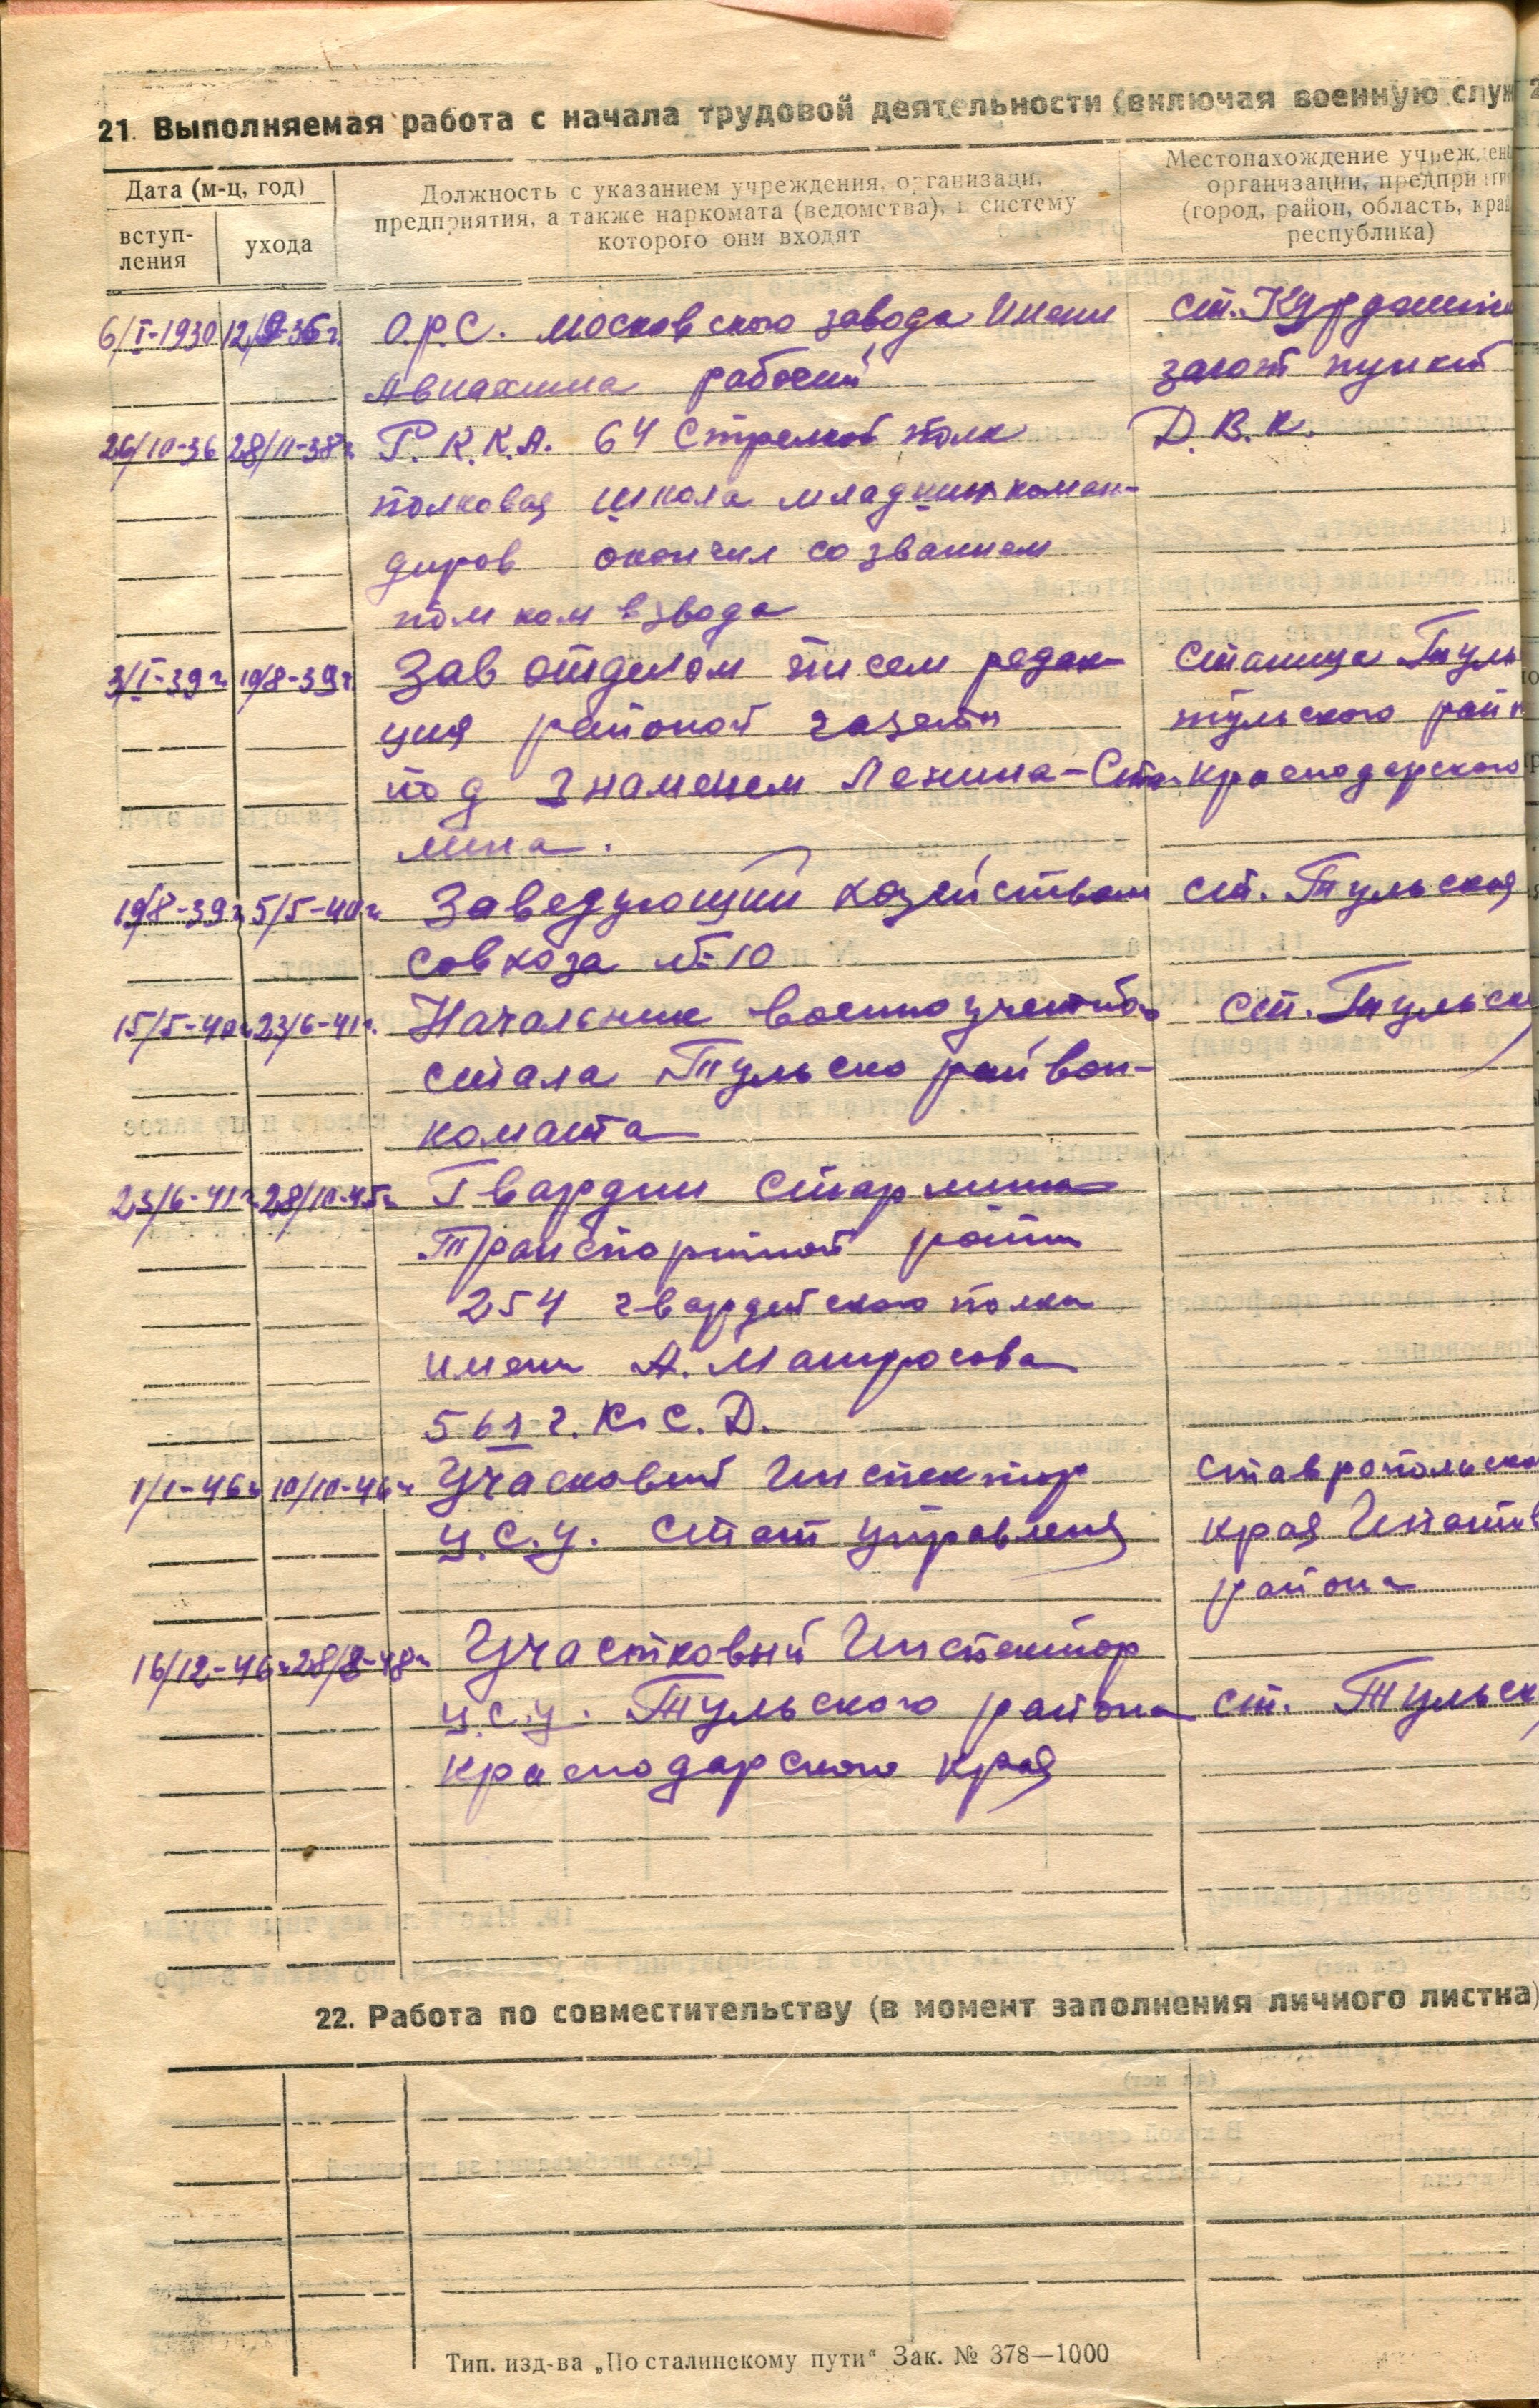 21. Выполняемая работа с начала трудовой деятельности (включая военную служ
Дата (м-ц, год)
вступ-
ления
ухода
Должность с указанием учреждения, организаци,
предприятия, а также наркомата (ведомства), в систему
которого они входят
Местонахождение учрежден
органчзации, предпри ти
(город, район, область, край
республика)
6/I-1930 12/9-36г. О.Р.С. московского завода Имени ст.
Авиахима рабочий загот пункт
26/10-36 28/11-38г. Р.К.К.А. 64 Стрелков полк Д.В.К.
полковая школа младших коман-
диров окончил со званием
пом ком взвода
3/I-39г. 19/8-39г. Зав отделом писем редак- станица Туль
ция районой газеты тульского рай
под Знаменем Ленина-Ста- краснодарского
лина.
19/8-39г. 5/5-40г. Заведующий хозяйством ст. Тульская
совхоза №10
15/5-40г. 23/6-41г. Начальник военноучетного ст. Тульск
стала Тульско райвоен-
комата
23/6-41г. 28/10-45г. Гвардии Старшина
Транспортной роты
254 гвардейского полка
имени А. Матросова
561 г.К.С.Д.
1/1-46г. 10/10-46г. Учасковый Инспектор ставропольско
Ц.С.У. Стат управления края Ипатов
района
16/12-46г. 28/8-48г. Участковый Инспектор
Ц.С.У. Тульского района ст. Тульск
краснодарского края
22. Работа по совместительству (в момент заполнения личного листка)
Тип. изд-ва „По сталинскому пути“ Зак. № 378—1000